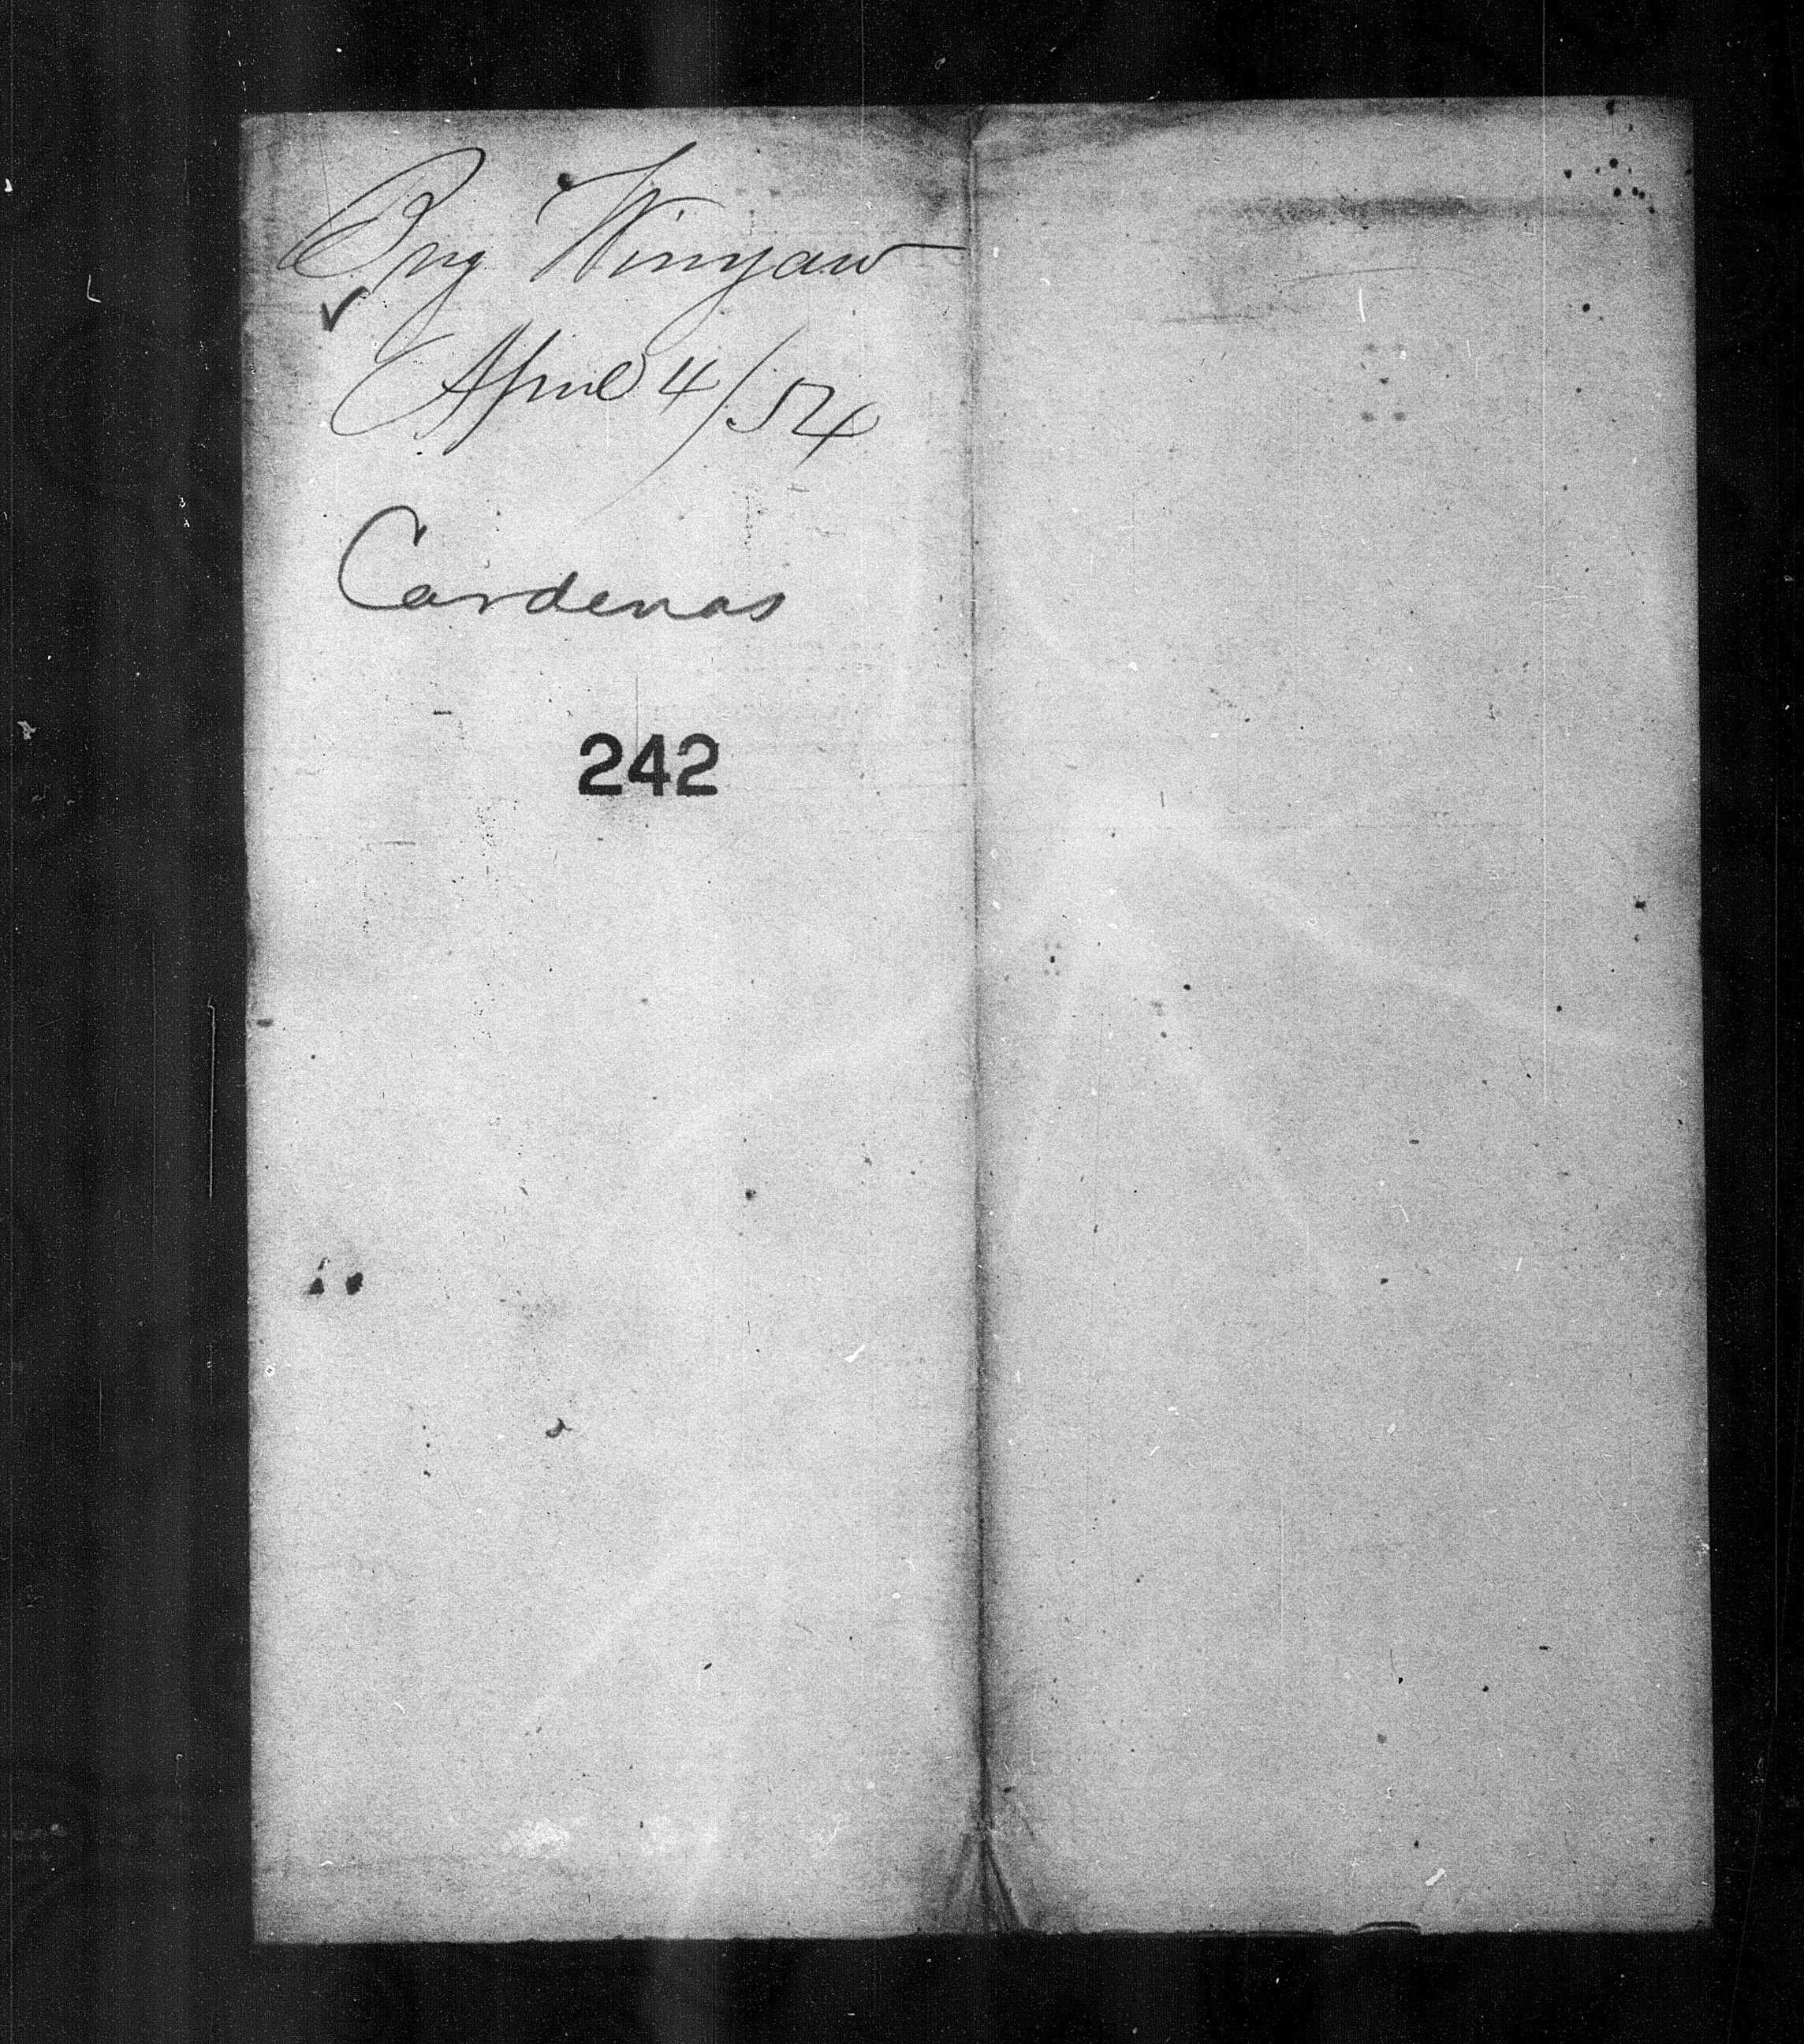 Brig Winyaw
April 4/54
Cardenas
242